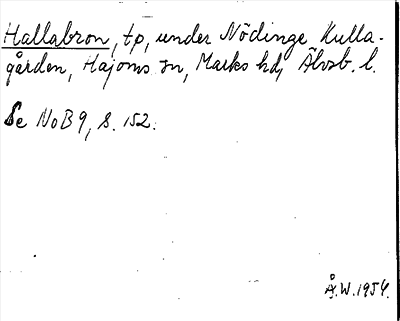 Hallabron, tp, under Nödinge Kulla-
gården, Hajoms sn, Marks hd, Älvsb. l.
Se NoB 9, s. 152.
Å.W. 1954.